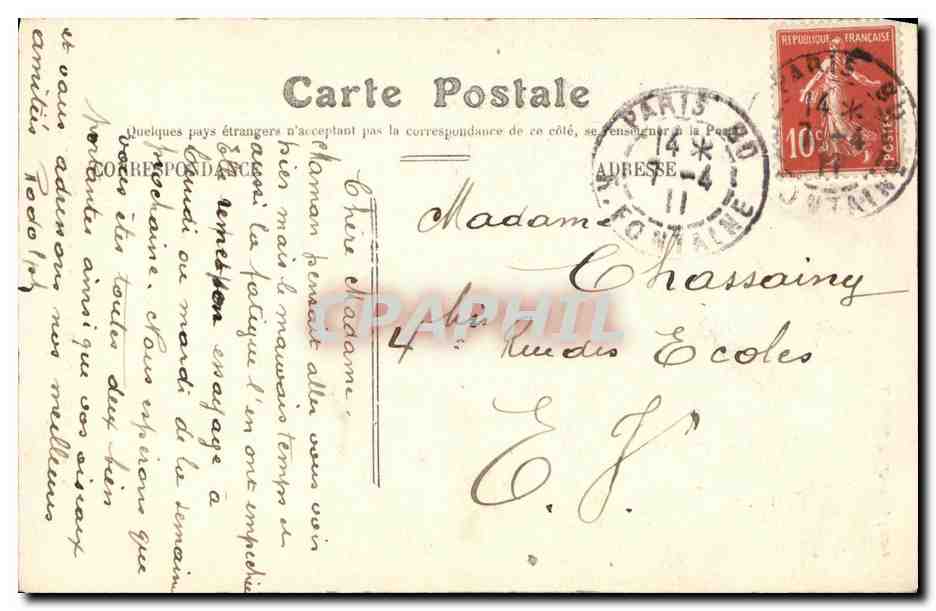 Carte Postale
Quelques pays étrangers n'acceptant pas la correspondance de ce côté, se renseigner à la Poste
CORRESPONDANCE
ADRESSE
Chère Madame,
Maman pensait aller vous voir
hier mais le mauvais temps et
aussi la fatigue l'en ont empêchée
essayage à
lundi ou mardi de la semaine
prochaine. Nous espérons que
vous êtes toutes deux bien
portantes ainsi que vos oiseaux
et vous adressons nos meilleures
amitiés Rodolph
Madame
Chassaing
4 bis Rue des Ecoles
E. V.
PARIS 80
14 *
7 -4
11
R. FONTAINE
REPUBLIQUE FRANÇAISE
10c
POSTES
PARIS 80
14 *
-4
11
FONTAINE
CPAPHIL